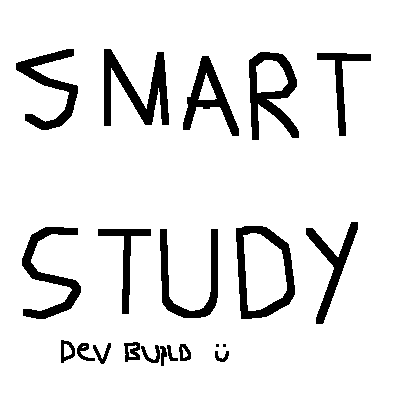 SMART
STUDY
Dev BUILD Ü